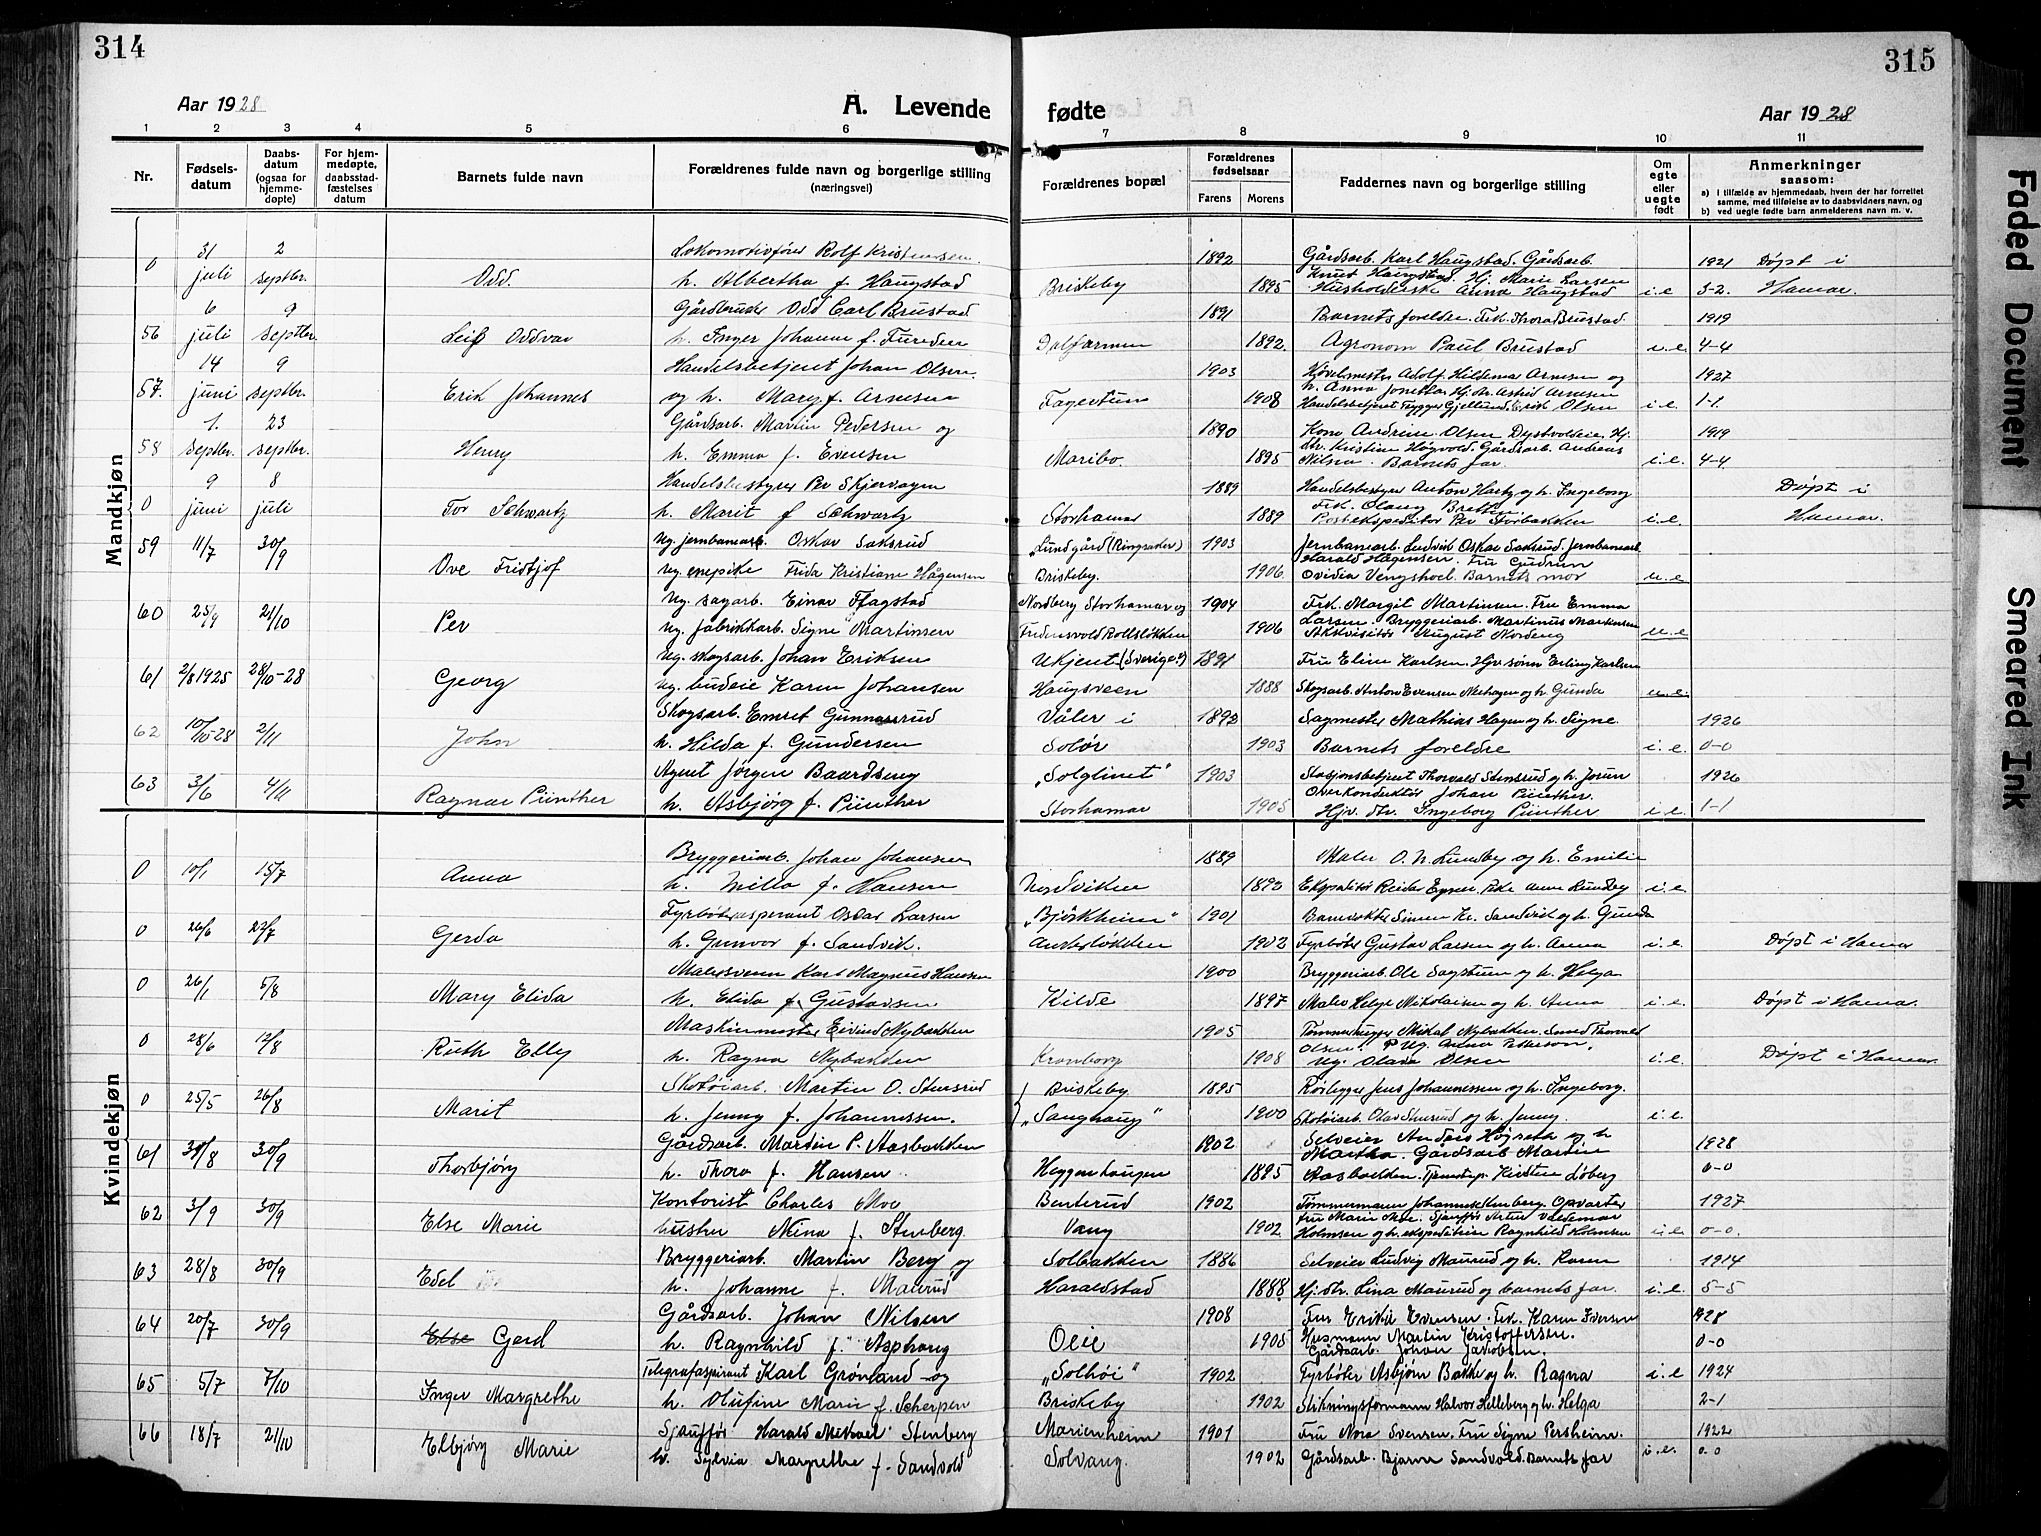 314
315
Aar 1928
A. Levende
fødte
Aar 1928
1 2 3 4 5 6 7 8 9 10 11
Nr.
Fødsels-
datum
Daabs-
datum
(ogsaa for
hjemme-
døpte)
For hjem-
medøpte,
daabsstad-
fæstelses
datum
Barnets fulde navn
Forældrenes fulde navn og borgerlige stilling
(næringsvei)
Forældrenes bopæl
Forældrenes
fødselsaar
Farens Morens
Faddernes navn og borgerlige stilling
Om
egte
eller
uegte
født
Anmerkninger
saasom:
a) i tilfælde av hjemmedaab, hvem der har forrettet
samme, med tilføielse av to daabsvidners navn, og
b) ved uegte fødte barn anmelderens navn m. v.
Mandkjøn
31 2 Lokomotivfører Rolf Kristensen. 1892 Gårdsarb. Karl Haugstad. Gårdsarb. 1921 Døpt i
0 juli septbr. Odd. h. Albertha f. Haugstad Briskeby 1895 Knut Haugstad. Hj. Marie Larsen Husholderske Anna Haugstad i.e 3-2. Hamar.
6 9 Gårdbruker Odd Carl Brustad 1891 Barnets foreldre. Frk. Thora Brustad. 1919
56 juli septbr. Leif Oddvar h. Inger Johanne f. Fureden 1892. Agronom Paul Brustad i.e. 4-4
14 9 Handelsbetjent Johan Olsen. 1903 Høvelmester Adolf Hildemar Arnesen og 1927
57. juni septbr. Erik Johannes og h. Mary f. Arnesen Fagertun 1908 h. Anna Jonetta. Hj. dr. Astrid Arnesen
Handelsbetjent Trygve Gjellund. Erik Olsen i.e. 1-1.
1. 23 Gårdsarb. Martin Pedersen og 1890 Kone Andrine Olsen Hj. 1919
58 septbr. septbr. Henry h. Emma f. Evensen Maribo. 1895 dtr. Kristine Høgvold. Gårdsarb. Andreas
Nilsen. Barnets far i.e. 4-4
9 8 Handelsbestyrer Per Skjervagen 1889 Handelsbestyrer Anton Hartz og h. Ingeborg Døpt i
0 juni juli Tor Schwartz h. Marit f Schwartz Storhamar 1889 Frk. Olaug
Postekspeditør Per Storbakken i.e. Hamar.
59 11/7 30/9 Ug. jernbanearb. Oskar Saksrud „Lundgård (Ringsaker) 1903 Jernbanearb. Ludvik Oskar Saksrud. Jernbanearb
Ove Fridtjof Ug. enepike Frida Kristiane Hågensen Briskeby. 1906. Harald Hågensen. Fru Gudrun
Ovidia Vengshoel. Barnets mor u.e
60 25/9 21/10 Ug. sagarb. Einar Fagstad Nordberg Storhamar og 1904 Frk. Margit Martinsen. Fru Emma
Per Ug. fabrikkarb. Signe Martinsen Fredensvold 1906 Larsen. Bryggeriarb. Martinus Martinsen
Akkvisitør August Nordeng u.e
61 2/8 1925 28/10-28 Ug. skogsarb. Johan Eriksen Ukjent (Sverige?) 1891 Fru Eline Karlsen. Hjv. sønn Erling Karlsen
Georg Ug. budeie Karen Johansen Haugsveen 1888 Skogsarb. Anton Evensen og h. Gunda u.e.
62 10/10-28 2/11 Skogsarb. Emret Gunnarsrud Våler i 1892 Sagmester Mathias Hagen og h. Signe. 1926
John h. Hilda f. Gundersen Solør 1903 Barnets foreldre i.e. 0-0
63 3/6 4/11 Agent Jørgen Baardseng „Solglimt" 1903 Stasjonsbetjent Thorvald Stensrud og h. Jorun 1926
Ragnar Pünther h. Asbjørg f. Pünther Storhamar 1905 Overkonduktør Johan Pünther.
Hjv. dtr. Ingeborg Pünther i.e. 1-1
Kvindekjøn
0 10/1 15/7 Bryggeriarb. Johan Johansen 1889 Maler O. N. Lundby og h. Emilie
Anna h. Milla f. Hansen Nordviken 1893 Ekspeditør Reidar i.e
0 26/6 22/7 Fyrbøteraspirant Oscar Larsen „Bjørkheim" 1901 Kr. Sandvik og h. Gunda
Gerda h. Gunvor f. Sandvik. 1902 Fyrbøter Gustav Larsen og h. Anna i.e. Døpt i Hamar
0 26/1 5/8 Malersvenn Karl Magnus Hansen 1900 Bryggeriarb. Ole Sagstuen og h. Helga
Mary Elida h. Elida f. Gustavsen Kilde 1897 Maler Helge Nikolaisen og h. Anna i.e. Døpt i Hamar.
0 28/6 12/8 Maskinmester Eivind Nybakken 1905 Tømmerhugger Mikal Nybakken. Smed Thorvald
Ruth Elly h. Ragna Nybakken Kronborg 1908 Olsen. Ug. Anna Petterson.
Ug. Olava Olsen i.e. Døpt i Hamar
0 25/5 26/8 Skotøiarb. Martin O. Stensrud Briskeby 1895 Rørlegger Jens Johannessen og h. Ingeborg.
Marit h. Jenny f. Johannessen. „Sanghaug" 1900 Skotøiarb. Olav Stensrud og h. Jenny. i.e.
61 31/8 30/9 Gårdsarb. Martin P. Aasbakken 1902 Selveier Anders og h 1928
Thorbjørg h. Thora f. Hansen Heggenhaugen 1895 Martha. Gårdsarb Martin
Aasbakken. Tjenstep. Kirsten Løberg 0-0
62 3/9 30/9 Kontorist Charles Moe Benterud 1902 Tømmermann Johannes Stenberg. Opvarter 1927
Else Marie hustru Nina f. Stenberg. Vang 1902 Fru Marie Moe. Sjauffør Artur Valdemar
Holmsen og h. ekspeditrise Ragnhild Holmsen i.e 0-0.
63 28/8 30/9 Bryggeriarb. Martin Berg og Solbakken 1886 Selveier Ludvig Maurud og h. Karen 1914
Edel h. Johanne f. Malerud Haraldstad 1888 Hj. dtr. Lina Maurud og barnets far. i.e. 5-5
64 20/7 30/9 Gårdsarb. Johan Nilsen 1908 Fru Erikke Evensen. Frk. Karen Iversen 1928
Else Gerd h. Ragnhild f. Asphaug Oeie 1905 Husmann Martin Kristoffersen.
Gårdsarb. Johan Jakobsen. 0-0
65 5/7 7/10 Telegrafaspirant Karl Grønland og „Solhøi" 1902 Fyrbøter Asbjørn Bakke og h. Ragna i.e 1924
Inger Margrethe h. Olufine Marie f. Scherpen Briskeby 1902 Stikningsformann Halvor Helleberg og h. Helga 2-1
66 18/7 21/10 Sjauffør Harald Mikael Stenberg Marienheim 1901 Fru Nora Svensen. Fru Signe Persheim. 1922
Elbjørg Marie h. Sylvia Margrethe f. Sandvold Solvang. 1902 Gårdsarb. Bjarne Sandvold. Barnets far i.e. 0-0
Faded Document
Smeared Ink